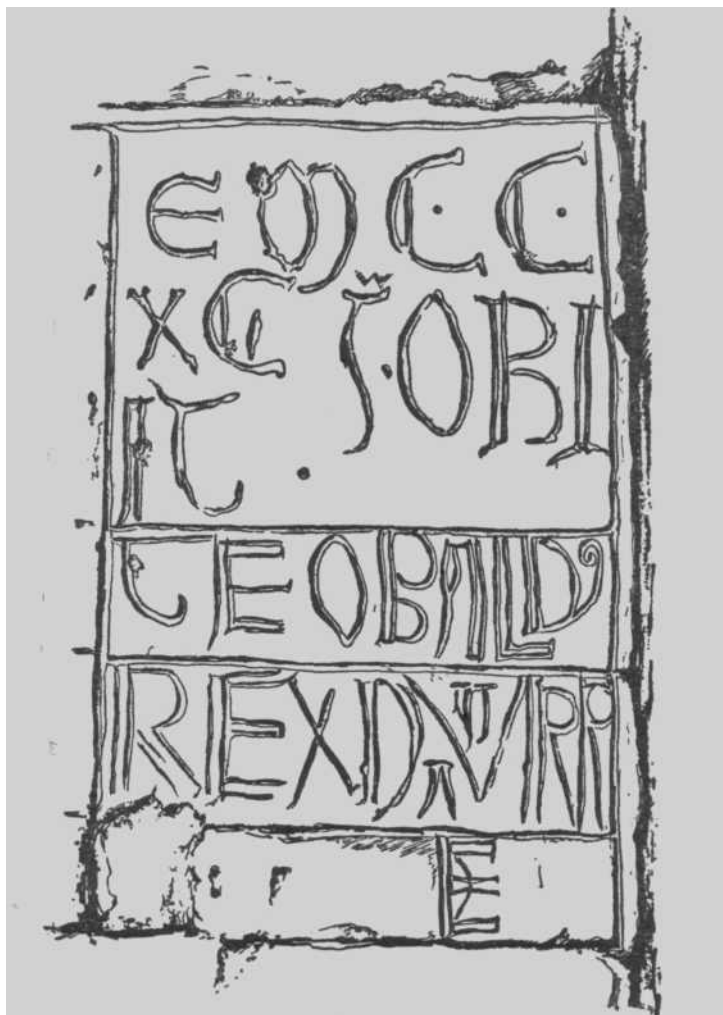 E M C C
XCI S·OBI
IT ·
TEOBALDꝰ
REX D NAVARR
E